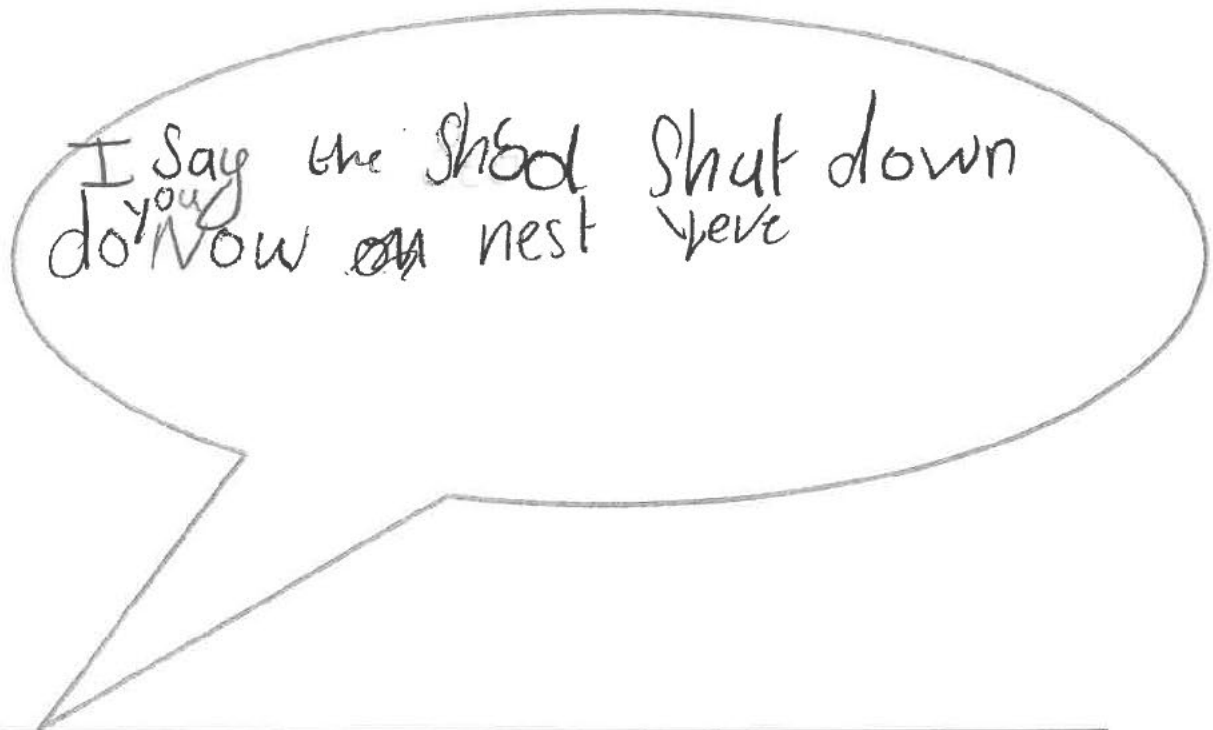 I Say the Shool Shut down
do you Now nest yere